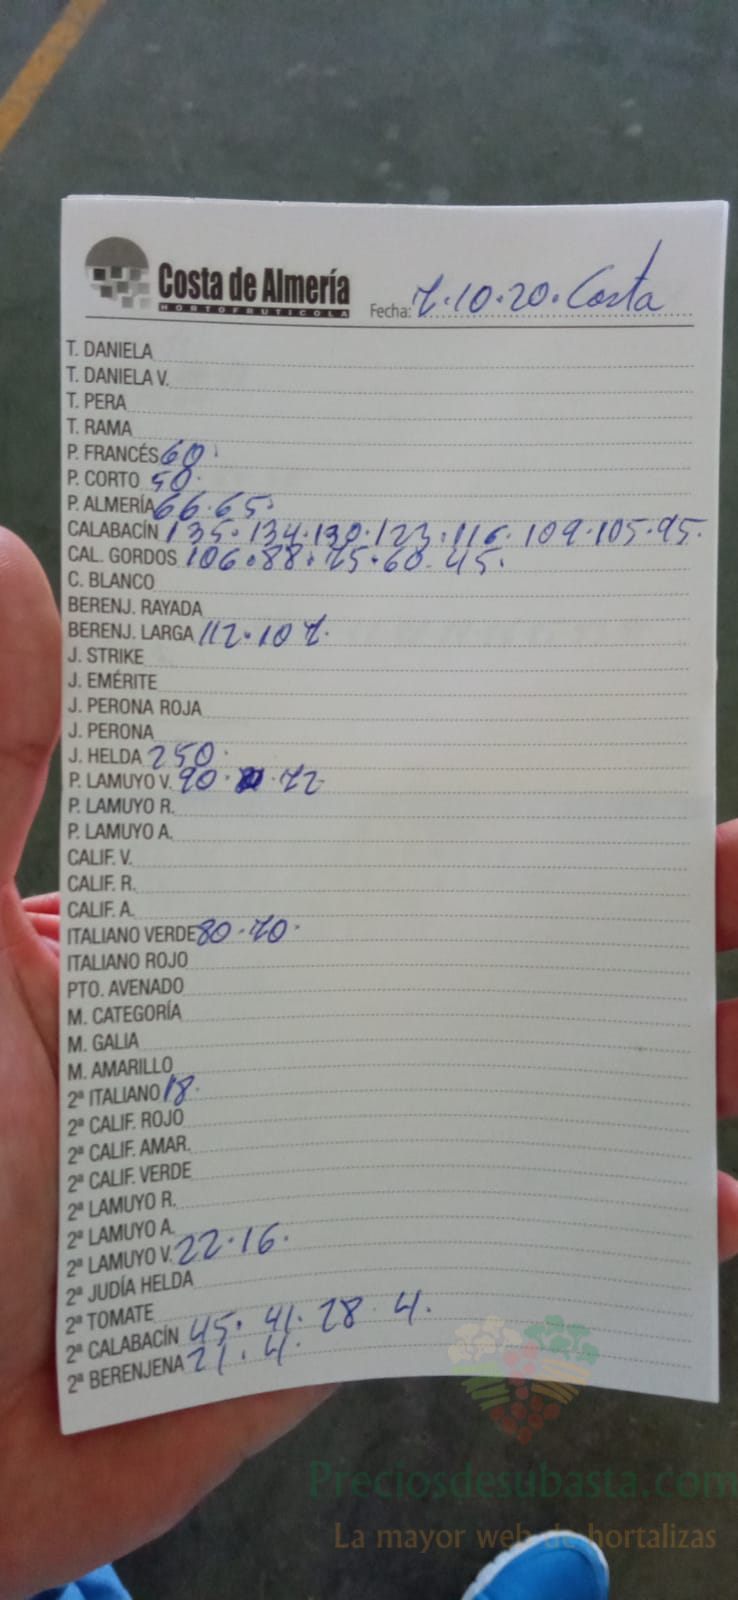 Costa de Almería
HORTOFRUTICOLA
Fecha: 7.10.20. Costa
T. DANIELA
T. DANIELA V.
T. PERA
T. RAMA
P. FRANCÉS 60.
P. CORTO 50.
P. ALMERÍA 66.65.
CALABACÍN 135.134.130.123.116.109.105.95.
CAL. GORDOS 106.88.75.60.45.
C. BLANCO
BERENJ. RAYADA
BERENJ. LARGA 112.107.
J. STRIKE
J. EMÉRITE
J. PERONA ROJA
J. PERONA
J. HELDA 250.
P. LAMUYO V. 90. 72
P. LAMUYO R.
P. LAMUYO A.
CALIF. V.
CALIF. R.
CALIF. A.
ITALIANO VERDE 80.70.
ITALIANO ROJO
PTO. AVENADO
M. CATEGORÍA
M. GALIA
M. AMARILLO
2ª ITALIANO 18.
2ª CALIF. ROJO
2ª CALIF. AMAR.
2ª CALIF. VERDE
2ª LAMUYO R.
2ª LAMUYO A.
2ª LAMUYO V. 22.16.
2ª JUDÍA HELDA
2ª TOMATE
2ª CALABACÍN 45. 41. 28. 4.
2ª BERENJENA 21. 4.
Preciosdesubasta.com
La mayor web de hortalizas